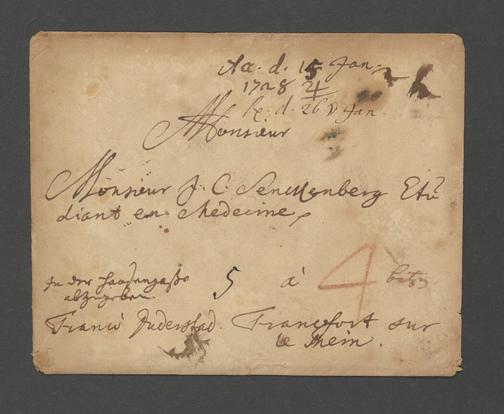 Ac. d. 15 Jan.
1728 4
R. d. 26 Jan.
Monsieur
Monsieur J. C. Senckenberg Etu
diant en Medecine
In der Haasengasse
abzugeben.
5 à 4 batz
Franco Duderstad. Francfort sur
le Mein.